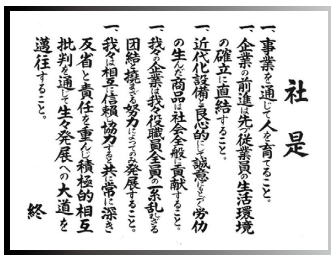 社是
一、事業を通じて人を育てること。
一、企業の前進は先づ従業員の生活環境
の確立に直結すること。
一、近代化設備と良心的にして誠意にもとづく労仂
の生んだ商品は社会全般に貢献すること。
一、我々の企業は我々役職員全員の一糸乱れざる
団結と撓まざる努力によつてのみ発展すること。
一、我々は相互に信頼し協力すると共に常に深き
反省と責任を重んじ積極的相互
批判を通して生々発展への大道を
邁往すること。
終